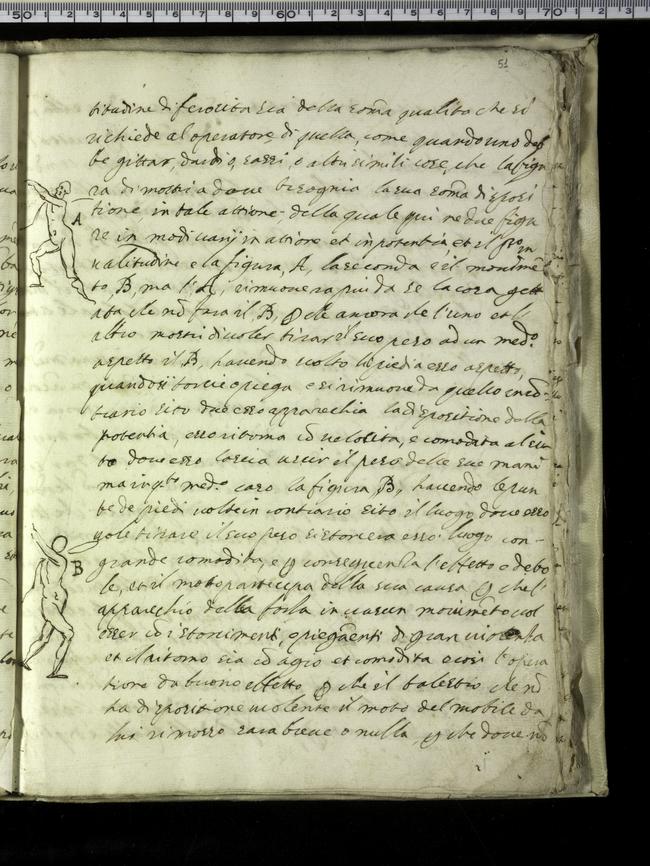 51
titudine di ferocita sia della soma qualita che si
richiede al operatore, di quella, come quando uno deb
be gittar, dardi o, sassi, o altri simili cose, che la figu
ra dimostri a dove bisognia la sua soma disposi
tione, in tale attione, della quale qui ne due figu
re in modi varij in atione et in potentia et il pro in
valitudine e la figura, A, la seconda e il movimē
to, B, ma l'A, rimuovera piu da se la cosa gett
ata che nō fara il B, che ancora che l'uno et l
altro mostri di voler tirar il suo peso ad un med.o
aspetto il B, havendo volto li piedi a esso aspetto
quando si torcie o piega e si rimuove da quello in cō
trario sito dove esso apparecchia la dispositione della
potentia, esso ritorna cō velocita, e comodita al si
to dove esso lascia uscir il peso delle sue mani
ma in q.to med.o caso la figura B, havendo le pun
te de piedi volte in contrario sito il luogo dove esso
vole tirare il suo peso si storciera esso luogo con
grande comodita, e consequenza l'effetto e debo
le, et il moto participa della sua causa che l
apparecchio della forza in ciascun movimēto vol
esser cō istorcimenti, e piegamenti di gran violenza
et il ritorno sia cō agio et comodita e cosi l'opera
tione da buono effetto che il balestro che nō
ha dispositione violente il moto del mobile da
lui rimosso sara breve o nulla, che dove nō
A
B